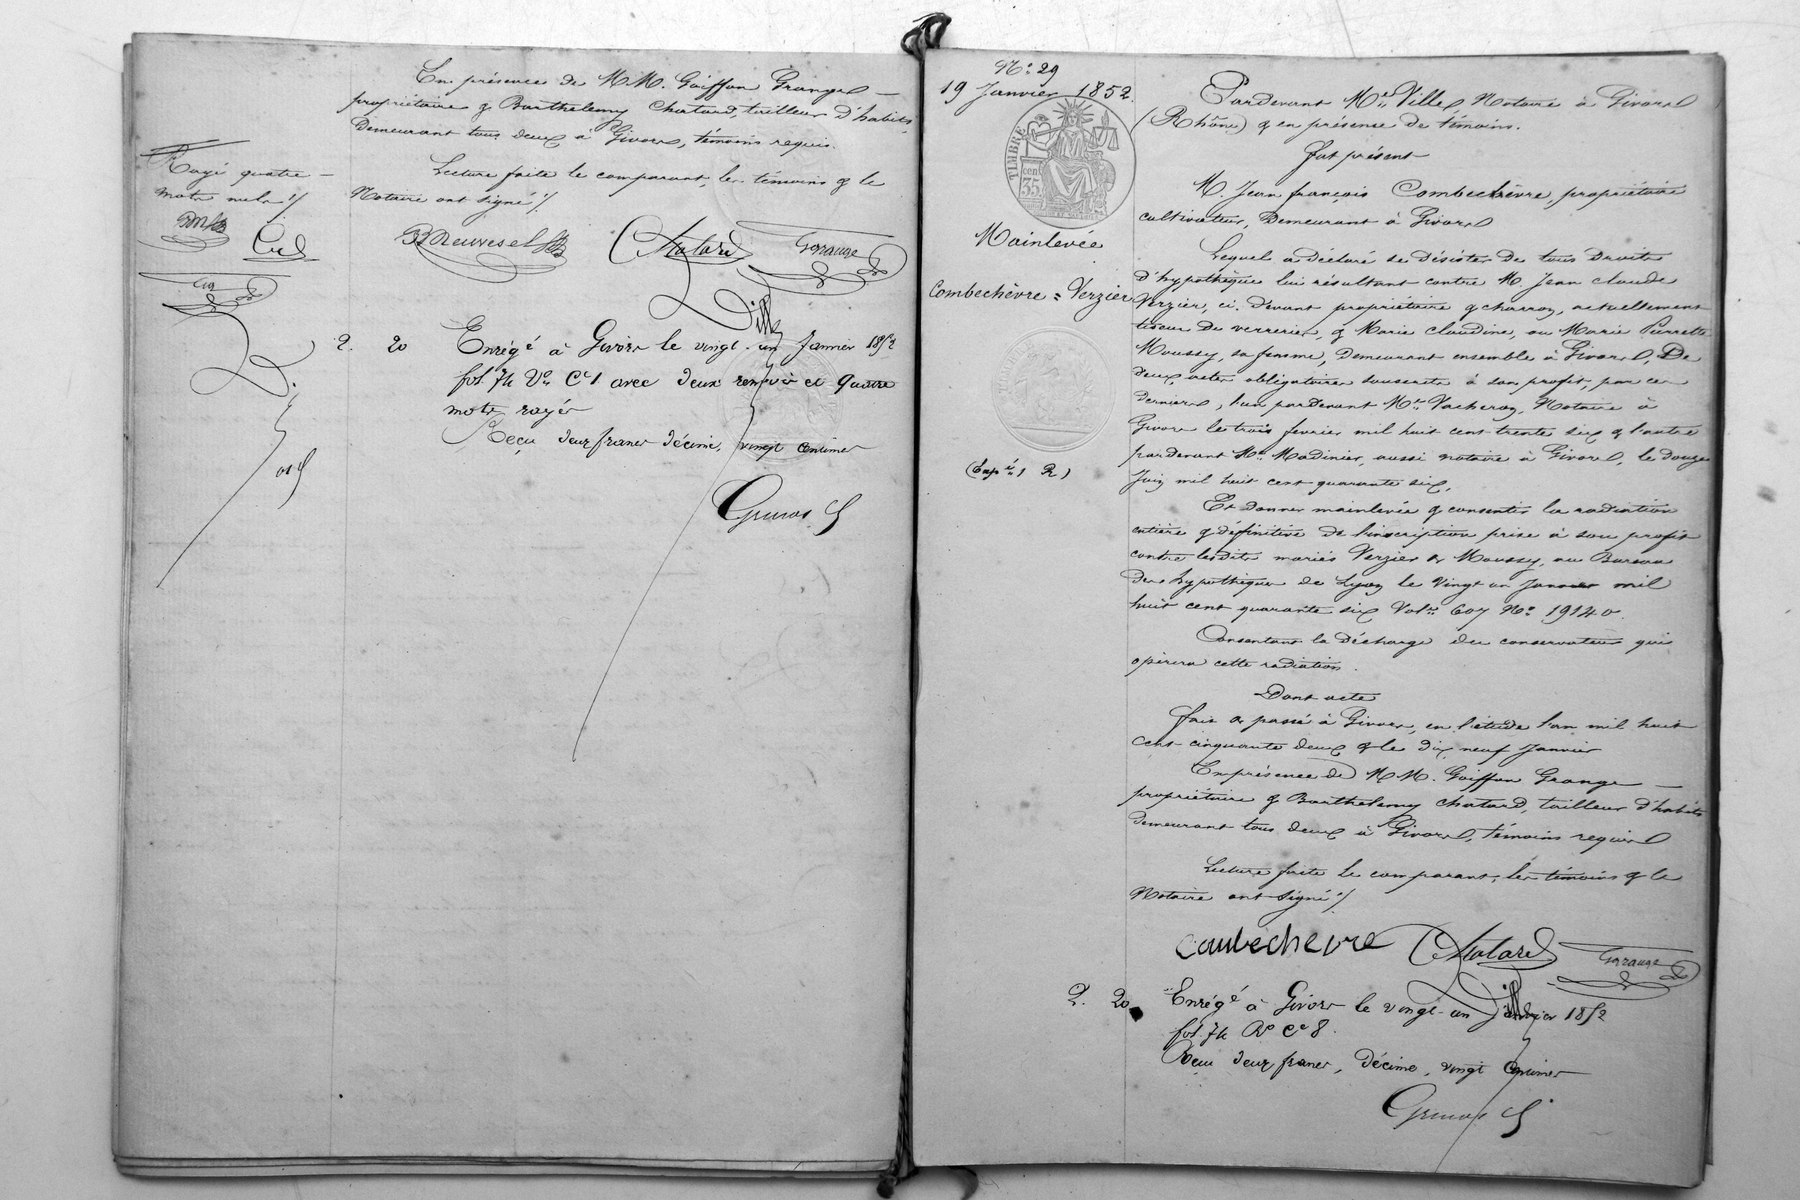 En présence de M.M. Goiffon Grange
propriétaire & Barthelemy Chatard, tailleur d'habits,
Demeurant tous deux à Givors, témoins requis.
Lecture faite le comparant, les témoins & le
Notaire ont signé ./.
Rayé quatre
mots nuls ./.
Chatard
Grange
Ville
2. 20
Enrégé à Givors le vingt-un Janvier 1852
fol. 74 Vo Ce 1 avec deux renvois et quatre
mots rayés
Reçu deux francs décime, vingt centimes
No 29
19 Janvier 1852.
TIMBRE
cen
35
Mainlevée
Combechèvre = Verzier
(Exp re 1 R)
Pardevant Me Ville Notaire à Givors
(Rhône) & en présence de témoins.
fut présent
M. Jean françois Combechèvre, propriétaire
cultivateur, Demeurant à Givors
Lequel a déclaré se désister de tous droits
d'hypothèque lui résultant contre M. Jean claude
Verzier, ci-devant propriétaire & charron, actuellement
tiseur de verreries, & Marie claudine, ou Marie Pierrette
Moussy, sa femme, demeurant ensemble à Givors, De
deux actes obligatoires souscrits à son profit, par ces
derniers, l'un pardevant Me Vacheron, Notaire à
Givors le trois fevrier mil huit cent trente six & l'autre
pardevant Me Madinier, aussi notaire à Givors, le douze
Juin mil huit cent quarante six.
Et donner mainlevée & consentir la radiation
entière & définitive de l'inscription prise à son profit
contre lesdits mariés Verzier & Moussy, au Bureau
des hypothèques de Lyon le Vingt un Janvier mil
huit cent quarante six Vol. 607 No 191
Consentant la décharge du conservateur qui
opèrera cette radiation.
Dont acte
fait & passé à Givors, en l'étude l'an mil huit
cent cinquante deux & le dix neuf Janvier
En présence de M.M. Goiffon Grange
propriétaire & Barthelemy Chatard, tailleur d'habits
demeurant tous deux à Givors, témoins requis
Lecture faite le comparant, les témoins & le
Notaire ont signé ./.
combechevre Chatard Grange
Ville
2. 20
Enrégé à Givors le vingt-un Janvier 1852
fol. 74 Ro Ce 8.
Reçu deux francs, décime, vingt centimes